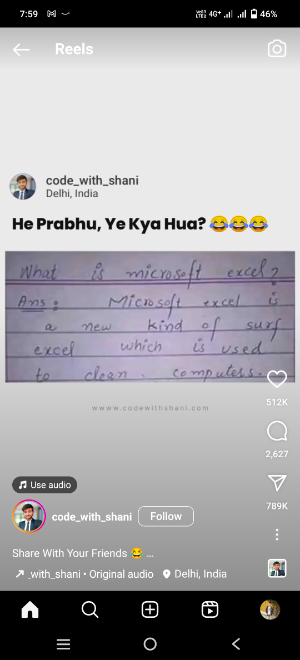 7:59
4G+ 46%
Reels
code_with_shani
Delhi, India
He Prabhu, Ye Kya Hua? 😂😂😂
What is microsoft excel?
Ans: Microsoft excel is
a new kind of surf
excel which is used
to clean computers.
www.codewithshani.com
512K
2,627
789K
Use audio
code_with_shani Follow
Share With Your Friends 😂 ...
_with_shani • Original audio Delhi, India